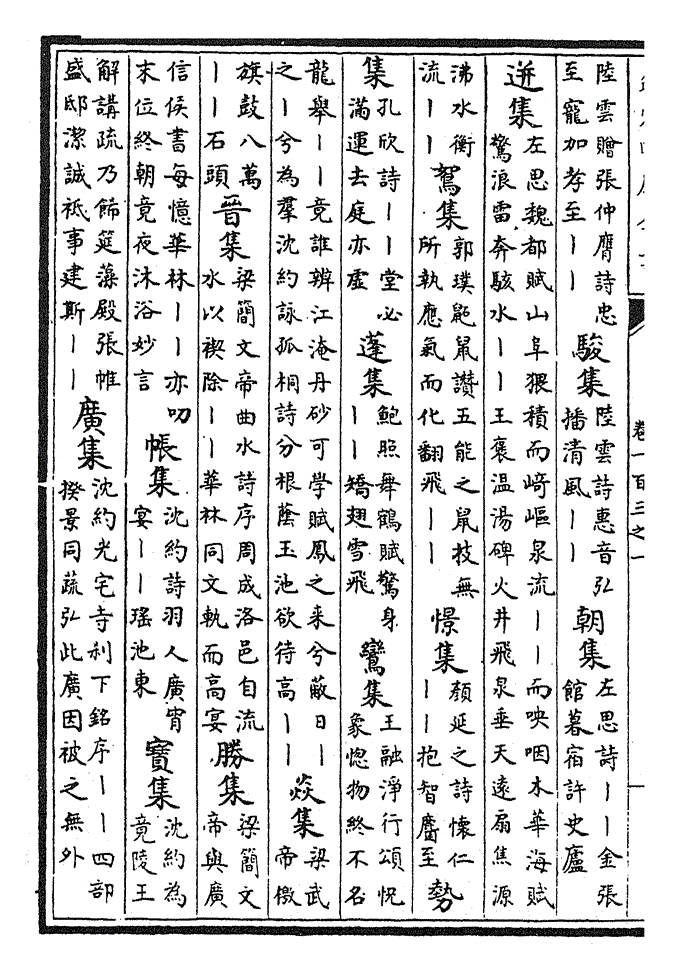 卷一百三之一
陸雲贈張仲膺詩忠至寵加孝至｜｜駿集陸雲詩惠音弘播清風｜｜朝集左思詩｜｜金張館暮宿許史廬
迸集左思魏都賦山阜猥積而崎嶇泉流｜｜而咉咽木華海賦驚浪雷奔駭水｜｜王襃温湯碑火井飛泉垂天遠扇焦源
沸水衝流｜｜鴛集郭璞鼫鼠讚五能之鼠技無所執應氣而化翻飛｜｜憬集顏延之詩懷仁｜｜抱智麕至勢
集孔欣詩｜｜堂必滿運去庭亦虚蓬集鮑照舞鶴賦驚身｜｜矯翅雪飛鸞集王融淨行頌怳象惚物終不名
龍舉｜｜竟誰辨江淹丹砂可學賦鳳之来兮蔽日｜之｜兮為羣沈約詠孤桐詩分根蔭玉池欲待高｜｜焱集梁武帝檄
旗鼓八萬｜｜石頭晉集梁簡文帝曲水詩序周成洛邑自流水以禊除｜｜華林同文軌而高宴勝集梁簡文帝與廣
信侯書每憶華林｜｜亦叨末位終朝竟夜沐浴妙言帳集沈約詩羽人廣宵宴｜｜瑶池東寶集沈約為竟陵王
解講疏乃飾筵藻殿張帷盛邸潔誠祗事建斯｜｜廣集沈約光宅寺刹下銘序｜｜四部揆景同蔬弘此廣因被之無外